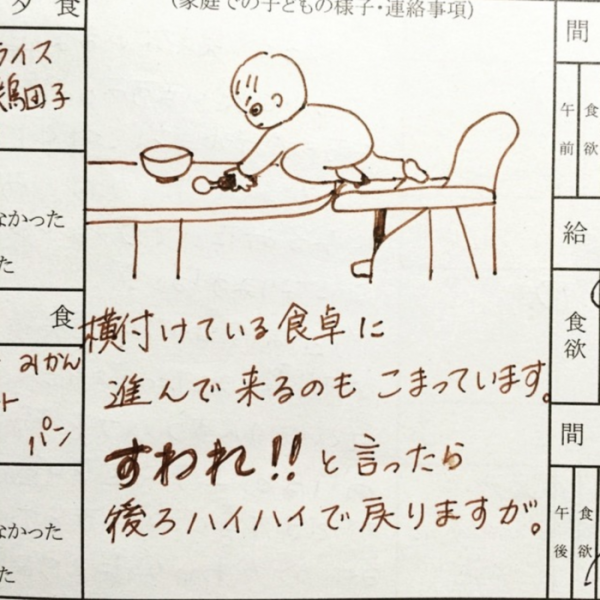 夕食
(家庭での子どもの様子・連絡事項)
間
ライス
鶏団子
午前
食欲
なかった
た
給
食
食欲
横付けている食卓に
進んで来るのもこまっています。
すわれ!!と言ったら
後ろハイハイで戻りますが。
みかん
ト
パン
間
なかった
た
午後
食欲